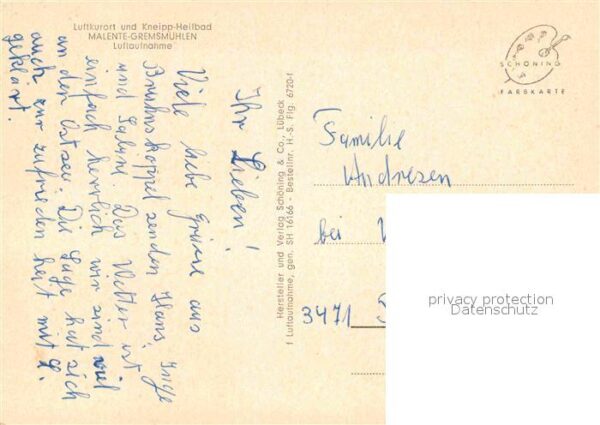 Luftkurort und Kneipp-Heilbad
MALENTE-GREMSMÜHLEN
Luftaufnahme
Ihr Lieben!
Viele liebe Grüsse aus
Bruhnskoppel senden Hans, Inge
und Sabine Das Wetter ist
einfach herrlich wir sind viel
an der Ostsee. Die Lage hat sich
auch zur zufrieden heit mit
geklärt.
Hersteller und Verlag Schöning & Co., Lübeck
† Luftaufnahme, gen. SH 16166 - Bestellnr. H.-S. Flg. 6720-f
SCHÖNING
FARBKARTE
Familie
Andresen
bei
3471
privacy protection
Datenschutz